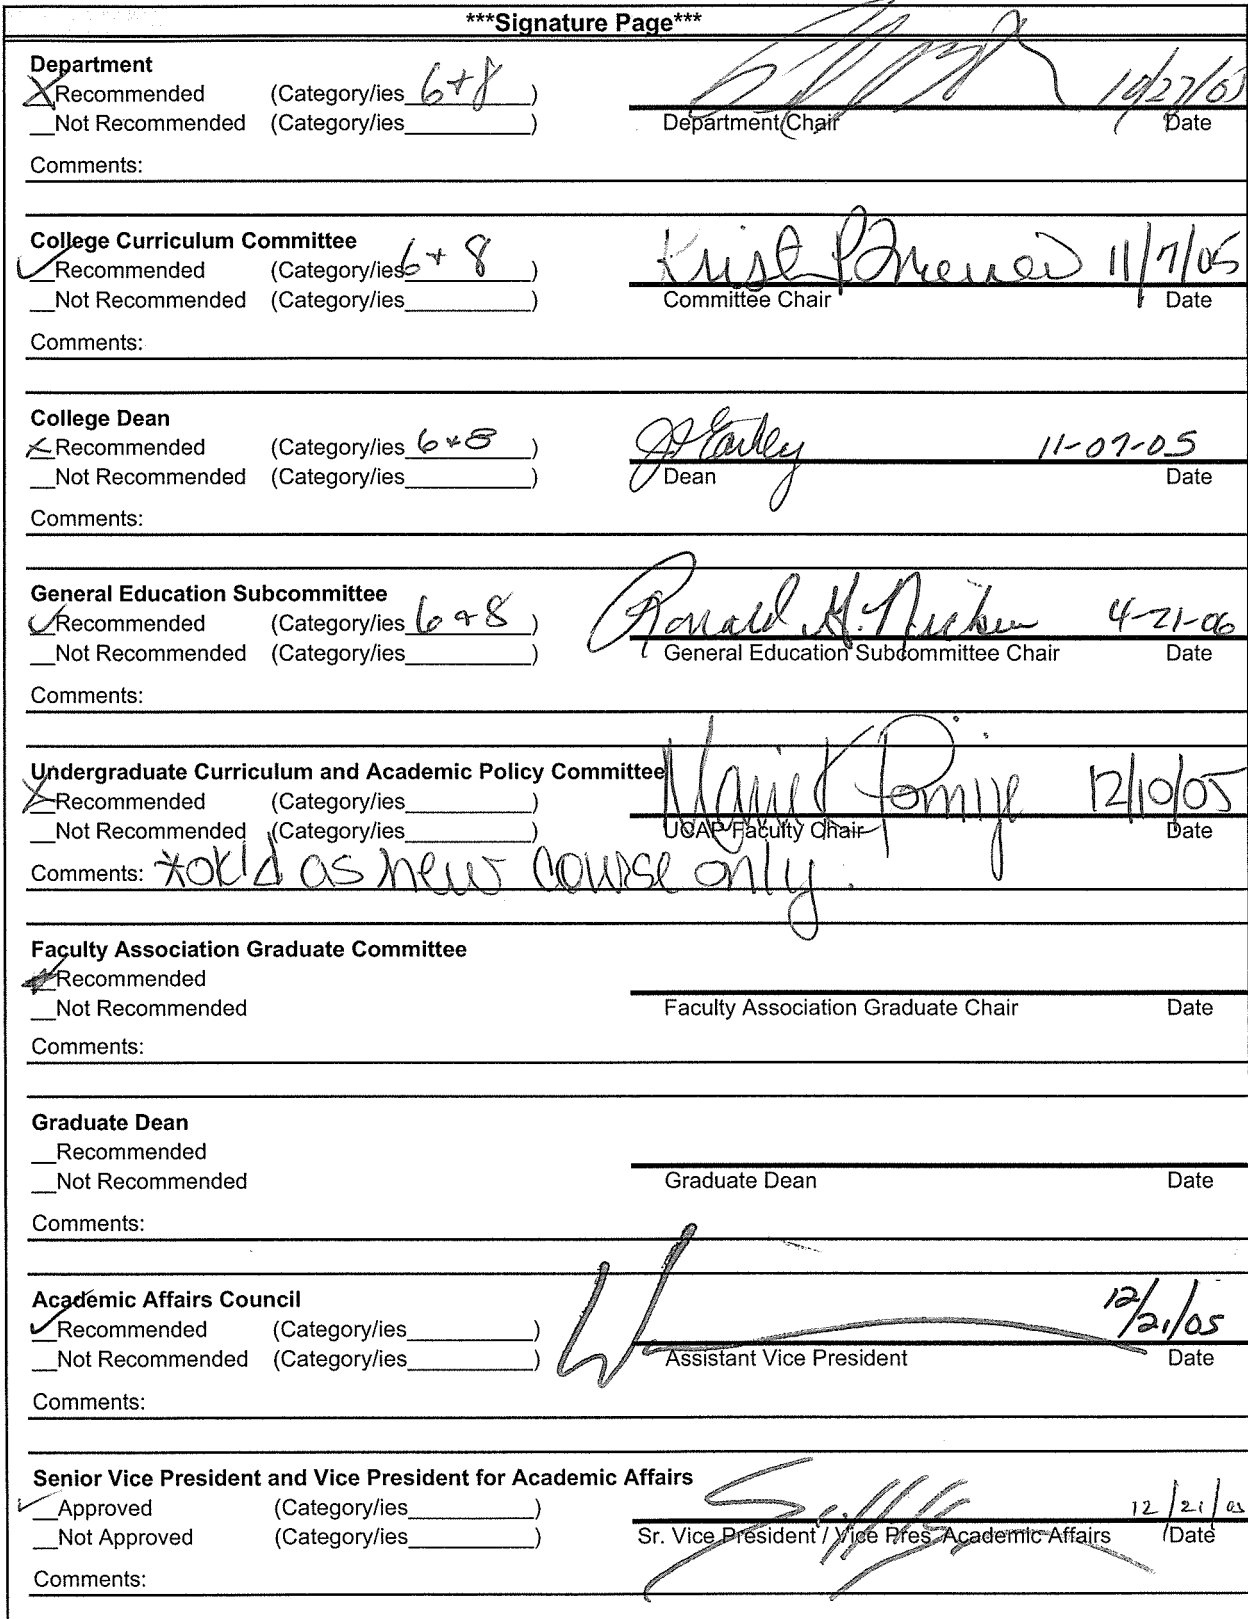 ***Signature Page***
Department
X Recommended (Category/ies 6+8 )
__Not Recommended (Category/ies_________) Department Chair Date
10/27/05
Comments:
College Curriculum Committee
✓ Recommended (Category/ies 6+8 )
11/7/05
__Not Recommended (Category/ies_________) Committee Chair Date
Comments:
College Dean
X Recommended (Category/ies 6+8 )
11-07-05
__Not Recommended (Category/ies_________) Dean Date
Comments:
General Education Subcommittee
✓ Recommended (Category/ies 6+8 ) Ronald H. 4-21-06
__Not Recommended (Category/ies_________) General Education Subcommittee Chair Date
Comments:
Undergraduate Curriculum and Academic Policy Committee
X Recommended (Category/ies_________) 12/10/05
__Not Recommended (Category/ies_________) UCAP Faculty Chair Date
Comments: *ok'd as new course only.
Faculty Association Graduate Committee
__Recommended
__Not Recommended Faculty Association Graduate Chair Date
Comments:
Graduate Dean
__Recommended
__Not Recommended Graduate Dean Date
Comments:
Academic Affairs Council
✓ Recommended (Category/ies_________) 12/21/05
__Not Recommended (Category/ies_________) Assistant Vice President Date
Comments:
Senior Vice President and Vice President for Academic Affairs
✓ Approved (Category/ies_________) 12/21/05
__Not Approved (Category/ies_________) Sr. Vice President / Vice Pres. Academic Affairs Date
Comments: